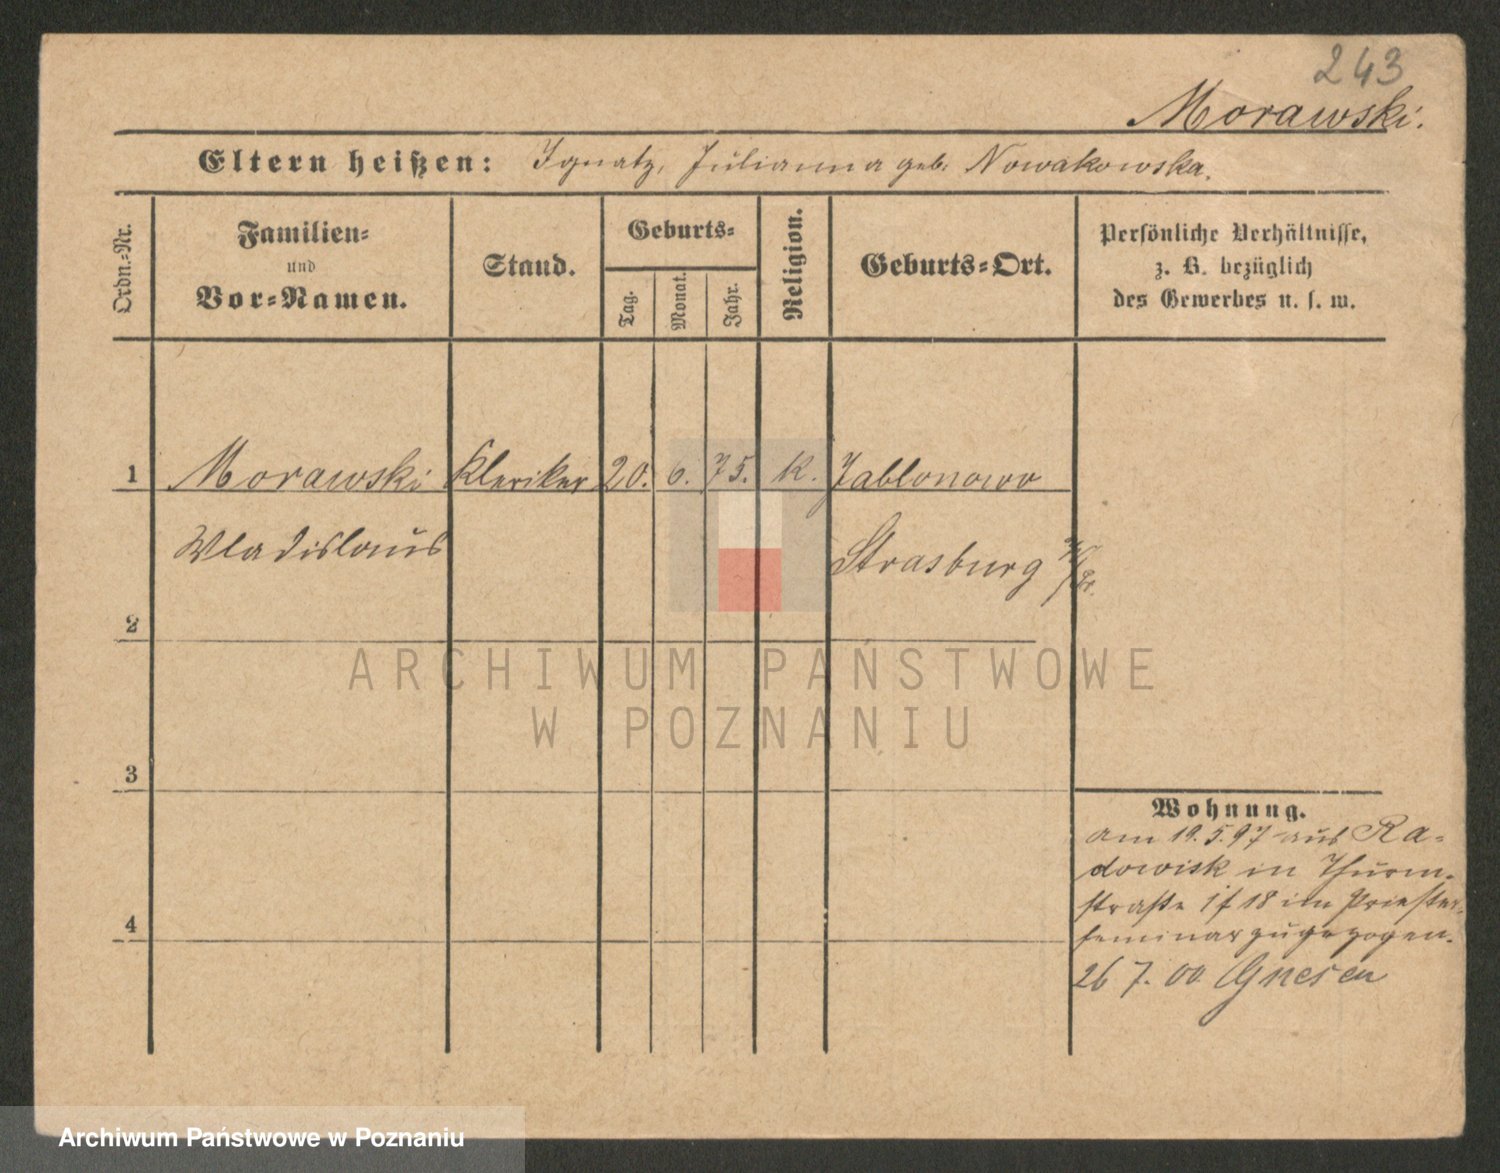 243
Morawski.
Eltern heißen: Ignatz, Julianna geb. Nowakowska.
Ordn.-Nr.
Familien-
und
Vor-Namen.
Stand.
Geburts-
Tag.
Monat.
Jahr.
Religion.
Geburts-Ort.
Persönliche Verhältnisse,
z. B. bezüglich
des Gewerbes u. s. w.
1 Morawski Kleriker 20. 6. 75. K. Jablonowo
Wladislaus
Strasburg W/Pr.
2
ARCHIWUM PAŃSTWOWE
W POZNANIU
3
Wohnung.
am 19.5.97 aus Ra-
dowisk in Thurm-
straße 1/18 im Priester-
seminar zugezogen.
4
26 7. 00 Gnesen
Archiwum Państwowe w Poznaniu